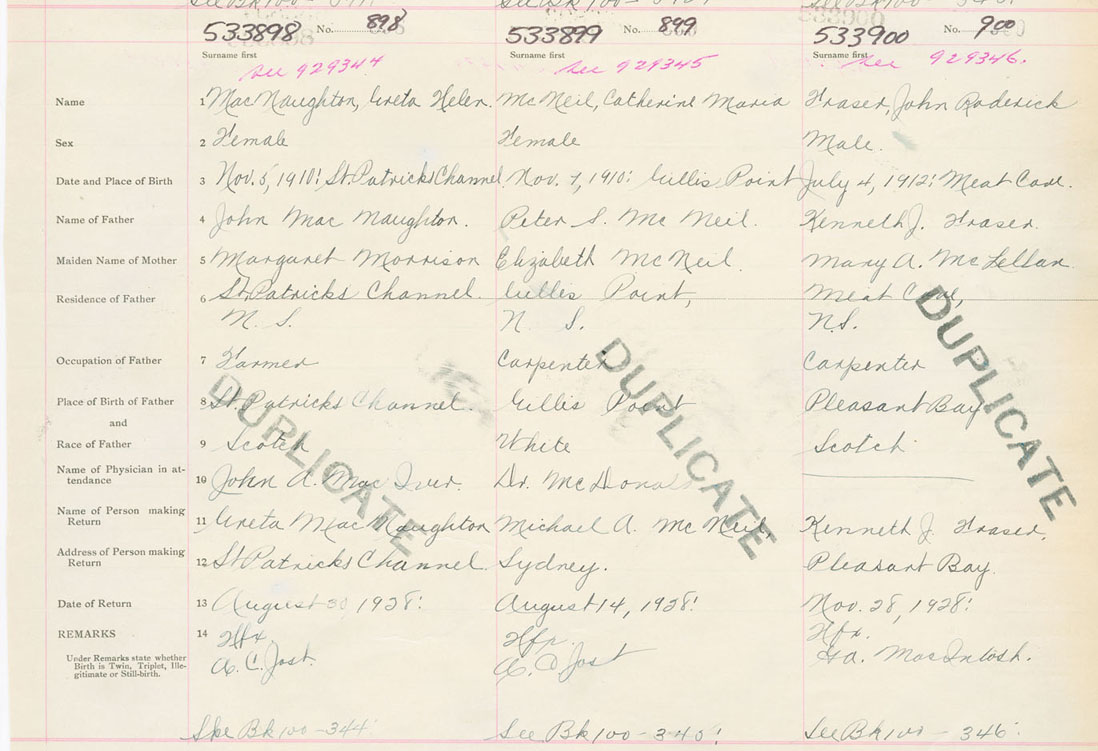 See Bk 100 - 341 See Bk 100 - 342! See Bk 100 - 343!
533898 No. 898 533899 No. 899 533900 No. 900
Surname first Surname first Surname first
See 929344 See 929345 See 929346.
Name 1 MacNaughton, Greta Helen. McNeil, Catherine Maria Fraser, John Roderick
Sex 2 Female Female Male.
Date and Place of Birth 3 Nov. 5, 1910! St. Patricks Channel Nov. 7, 1910! Gillis Point July 4, 1912! Meat Cove.
Name of Father 4 John MacNaughton. Peter S. McNeil. Kenneth J. Fraser.
Maiden Name of Mother 5 Margaret Morrison Elizabeth McNeil. Mary A. McLellan.
Residence of Father 6 St. Patricks Channel. Gillis Point, Meat Cove,
N. S. N. S. N.S.
Occupation of Father 7 Farmer Carpenter Carpenter
Place of Birth of Father 8 St. Patricks Channel. Gillis Point Pleasant Bay
and
Race of Father 9 Scotch White Scotch
Name of Physician in at-
tendance 10 John A. MacIver. Dr. McDonald
Name of Person making
Return 11 Greta MacNaughton Michael A. McNeil Kenneth J. Fraser,
Address of Person making
Return 12 St. Patricks Channel. Sydney. Pleasant Bay.
Date of Return 13 August 30, 1928! August 14, 1928! Nov. 28, 1928!
REMARKS 14 Hfx. Hfx. Hfx.
Under Remarks state whether
Birth is Twin, Triplet, Ille-
gitimate or Still-birth.
A. C. Jost. A. C. Jost MacIntosh.
DUPLICATE DUPLICATE DUPLICATE
See Bk 100 - 344! See Bk 100 - 345! See Bk 100 - 346!